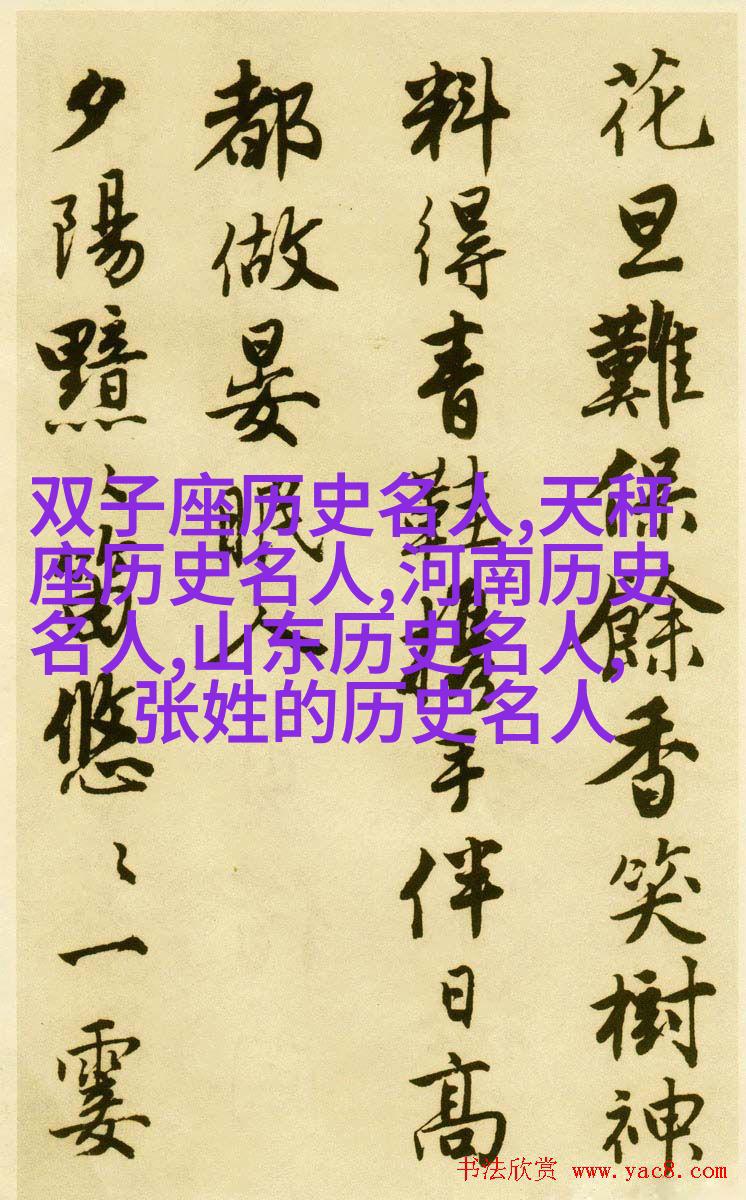 花旦難保餘香笑樹神
料得青鞋攜手伴日高
都做晏眠人
夕陽黯〻悠〻一霎
双子座历史名人,天秤
座历史名人,河南历史
名人,山东历史名人,
张姓的历史名人
书法欣赏 www.yac8.com